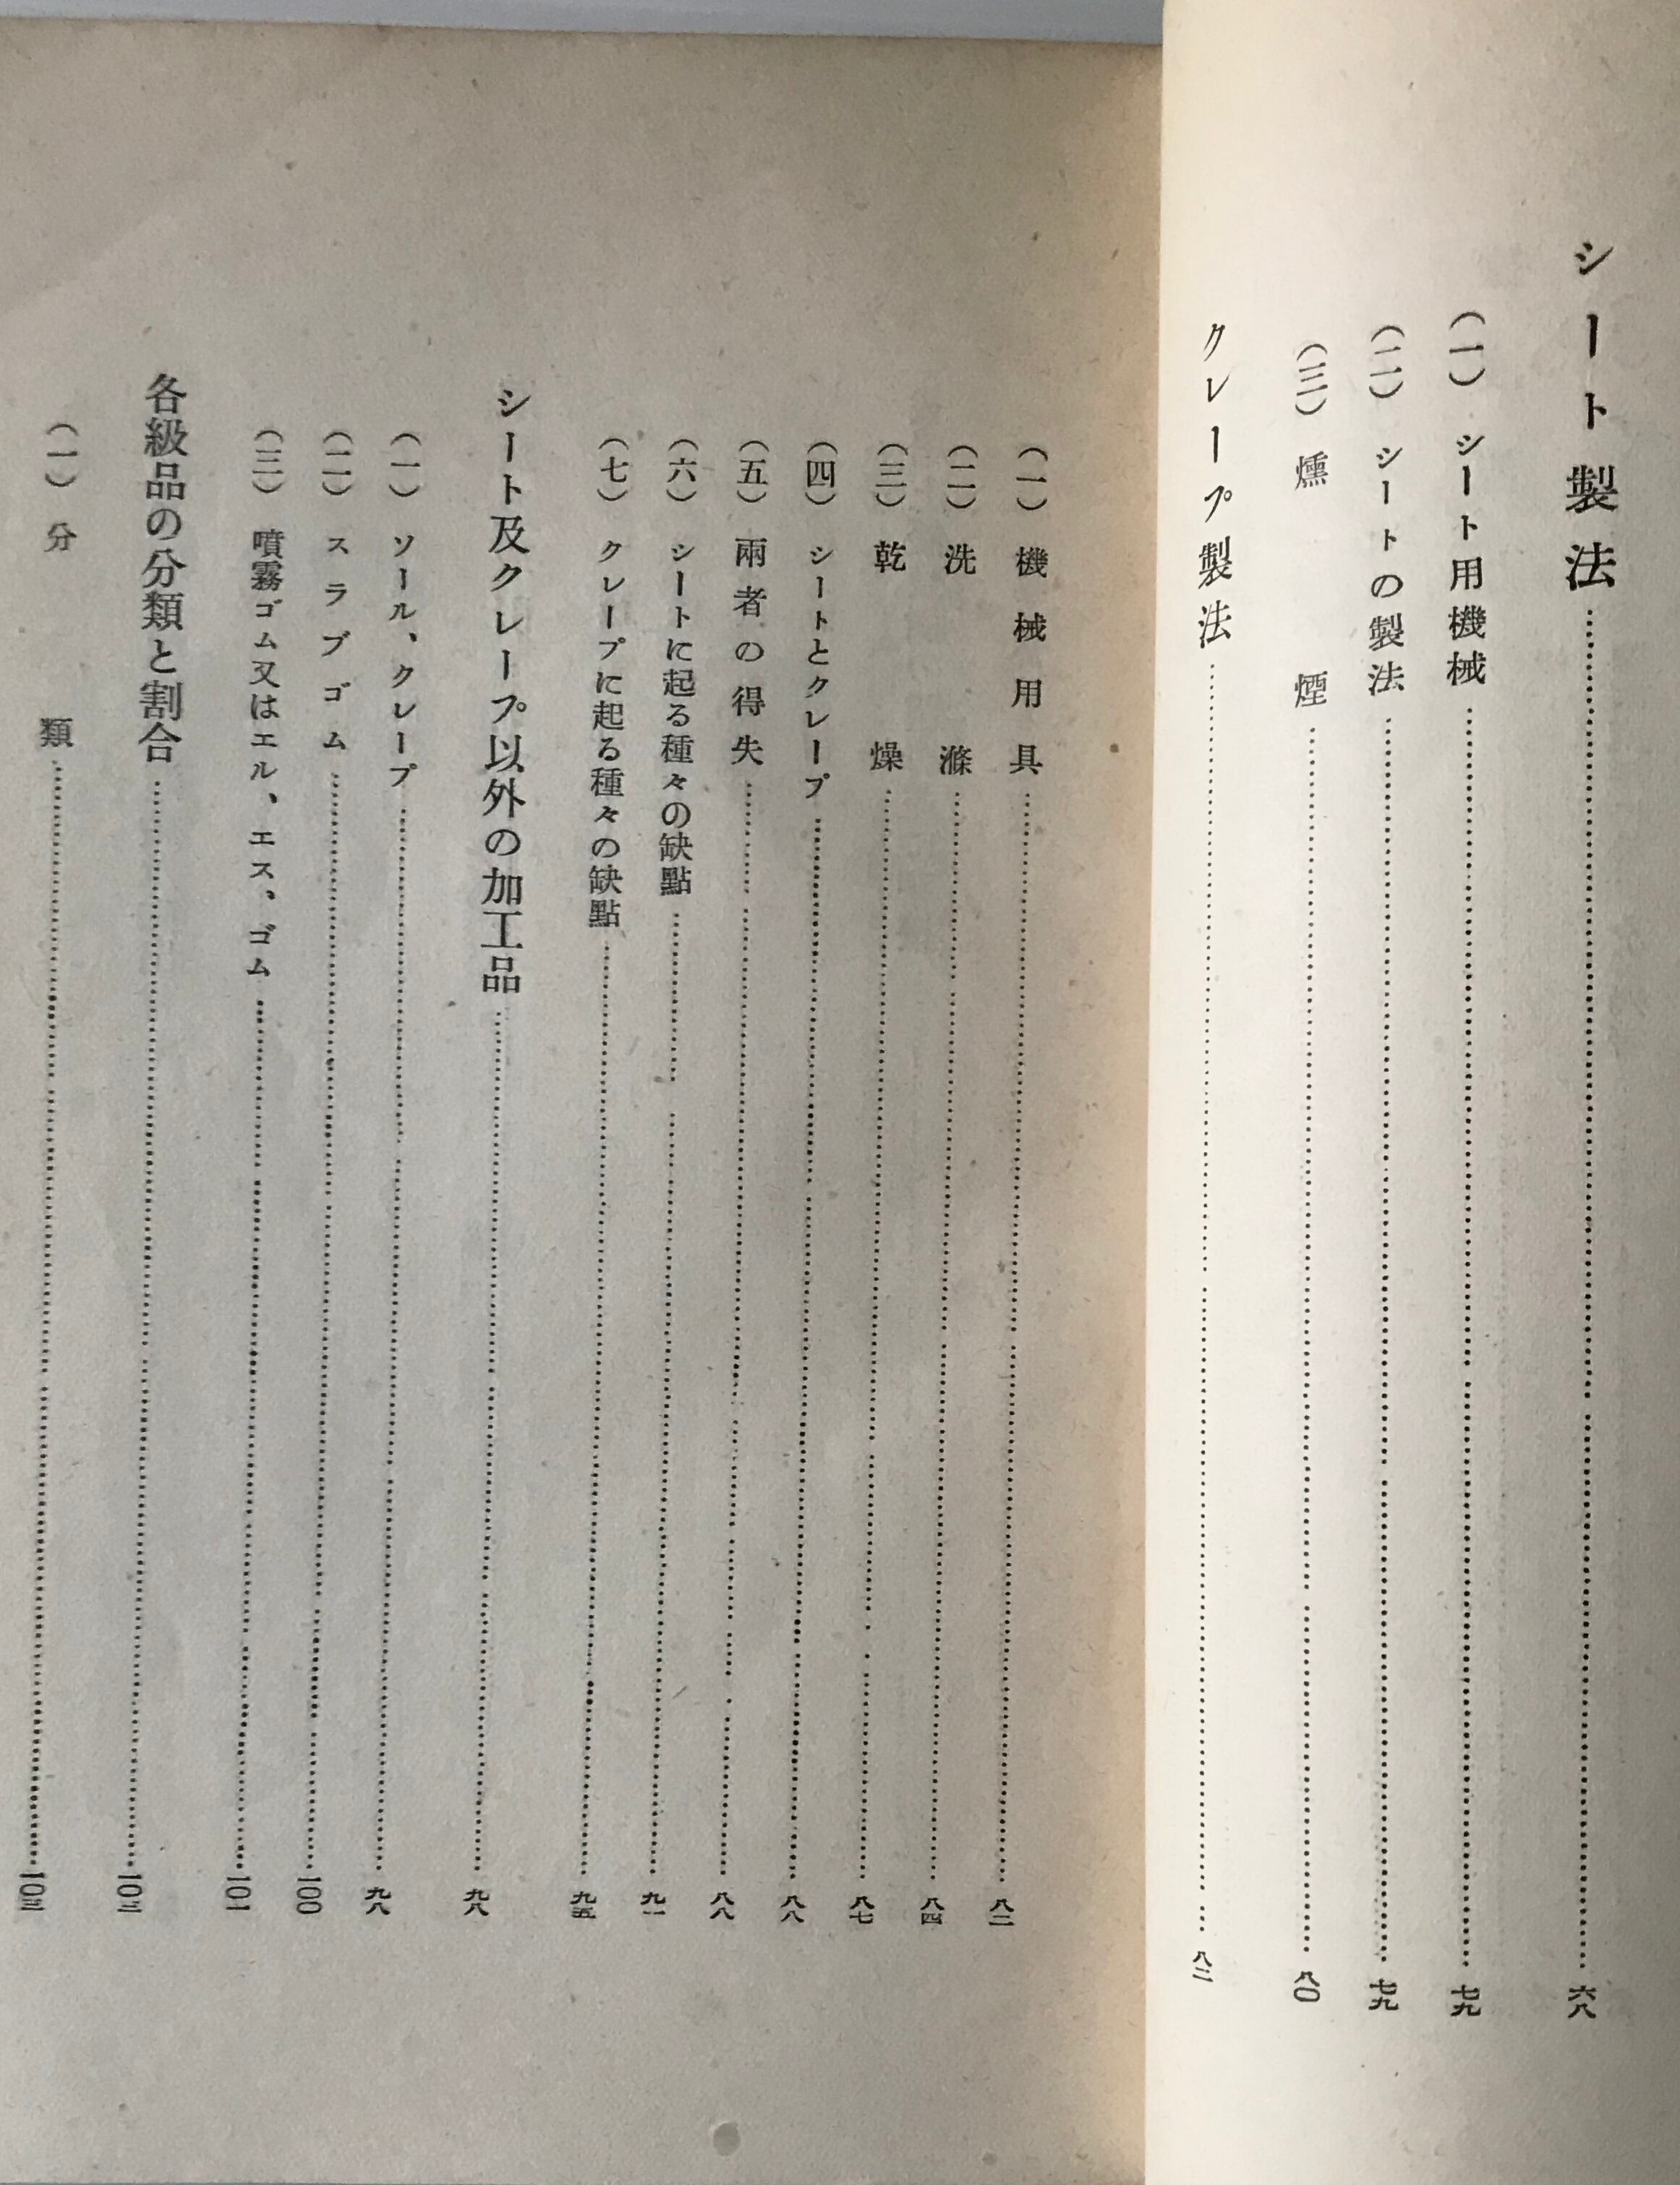 シート製法……六八
(一) シート用機械……七九
(二) シートの製法……七九
(三) 燻煙……八〇
クレープ製法……八二
(一) 機械用具……八二
(二) 洗滌……八四
(三) 乾燥……八七
(四) シートとクレープ……八八
(五) 兩者の得失……八八
(六) シートに起る種々の缺點……九一
(七) クレープに起る種々の缺點……九五
シート及クレープ以外の加工品……九八
(一) ソール、クレープ……九八
(二) スラブゴム……一〇〇
(三) 噴霧ゴム又はエル、エス、ゴム……一〇一
各級品の分類と割合……一〇三
(一) 分類……一〇三